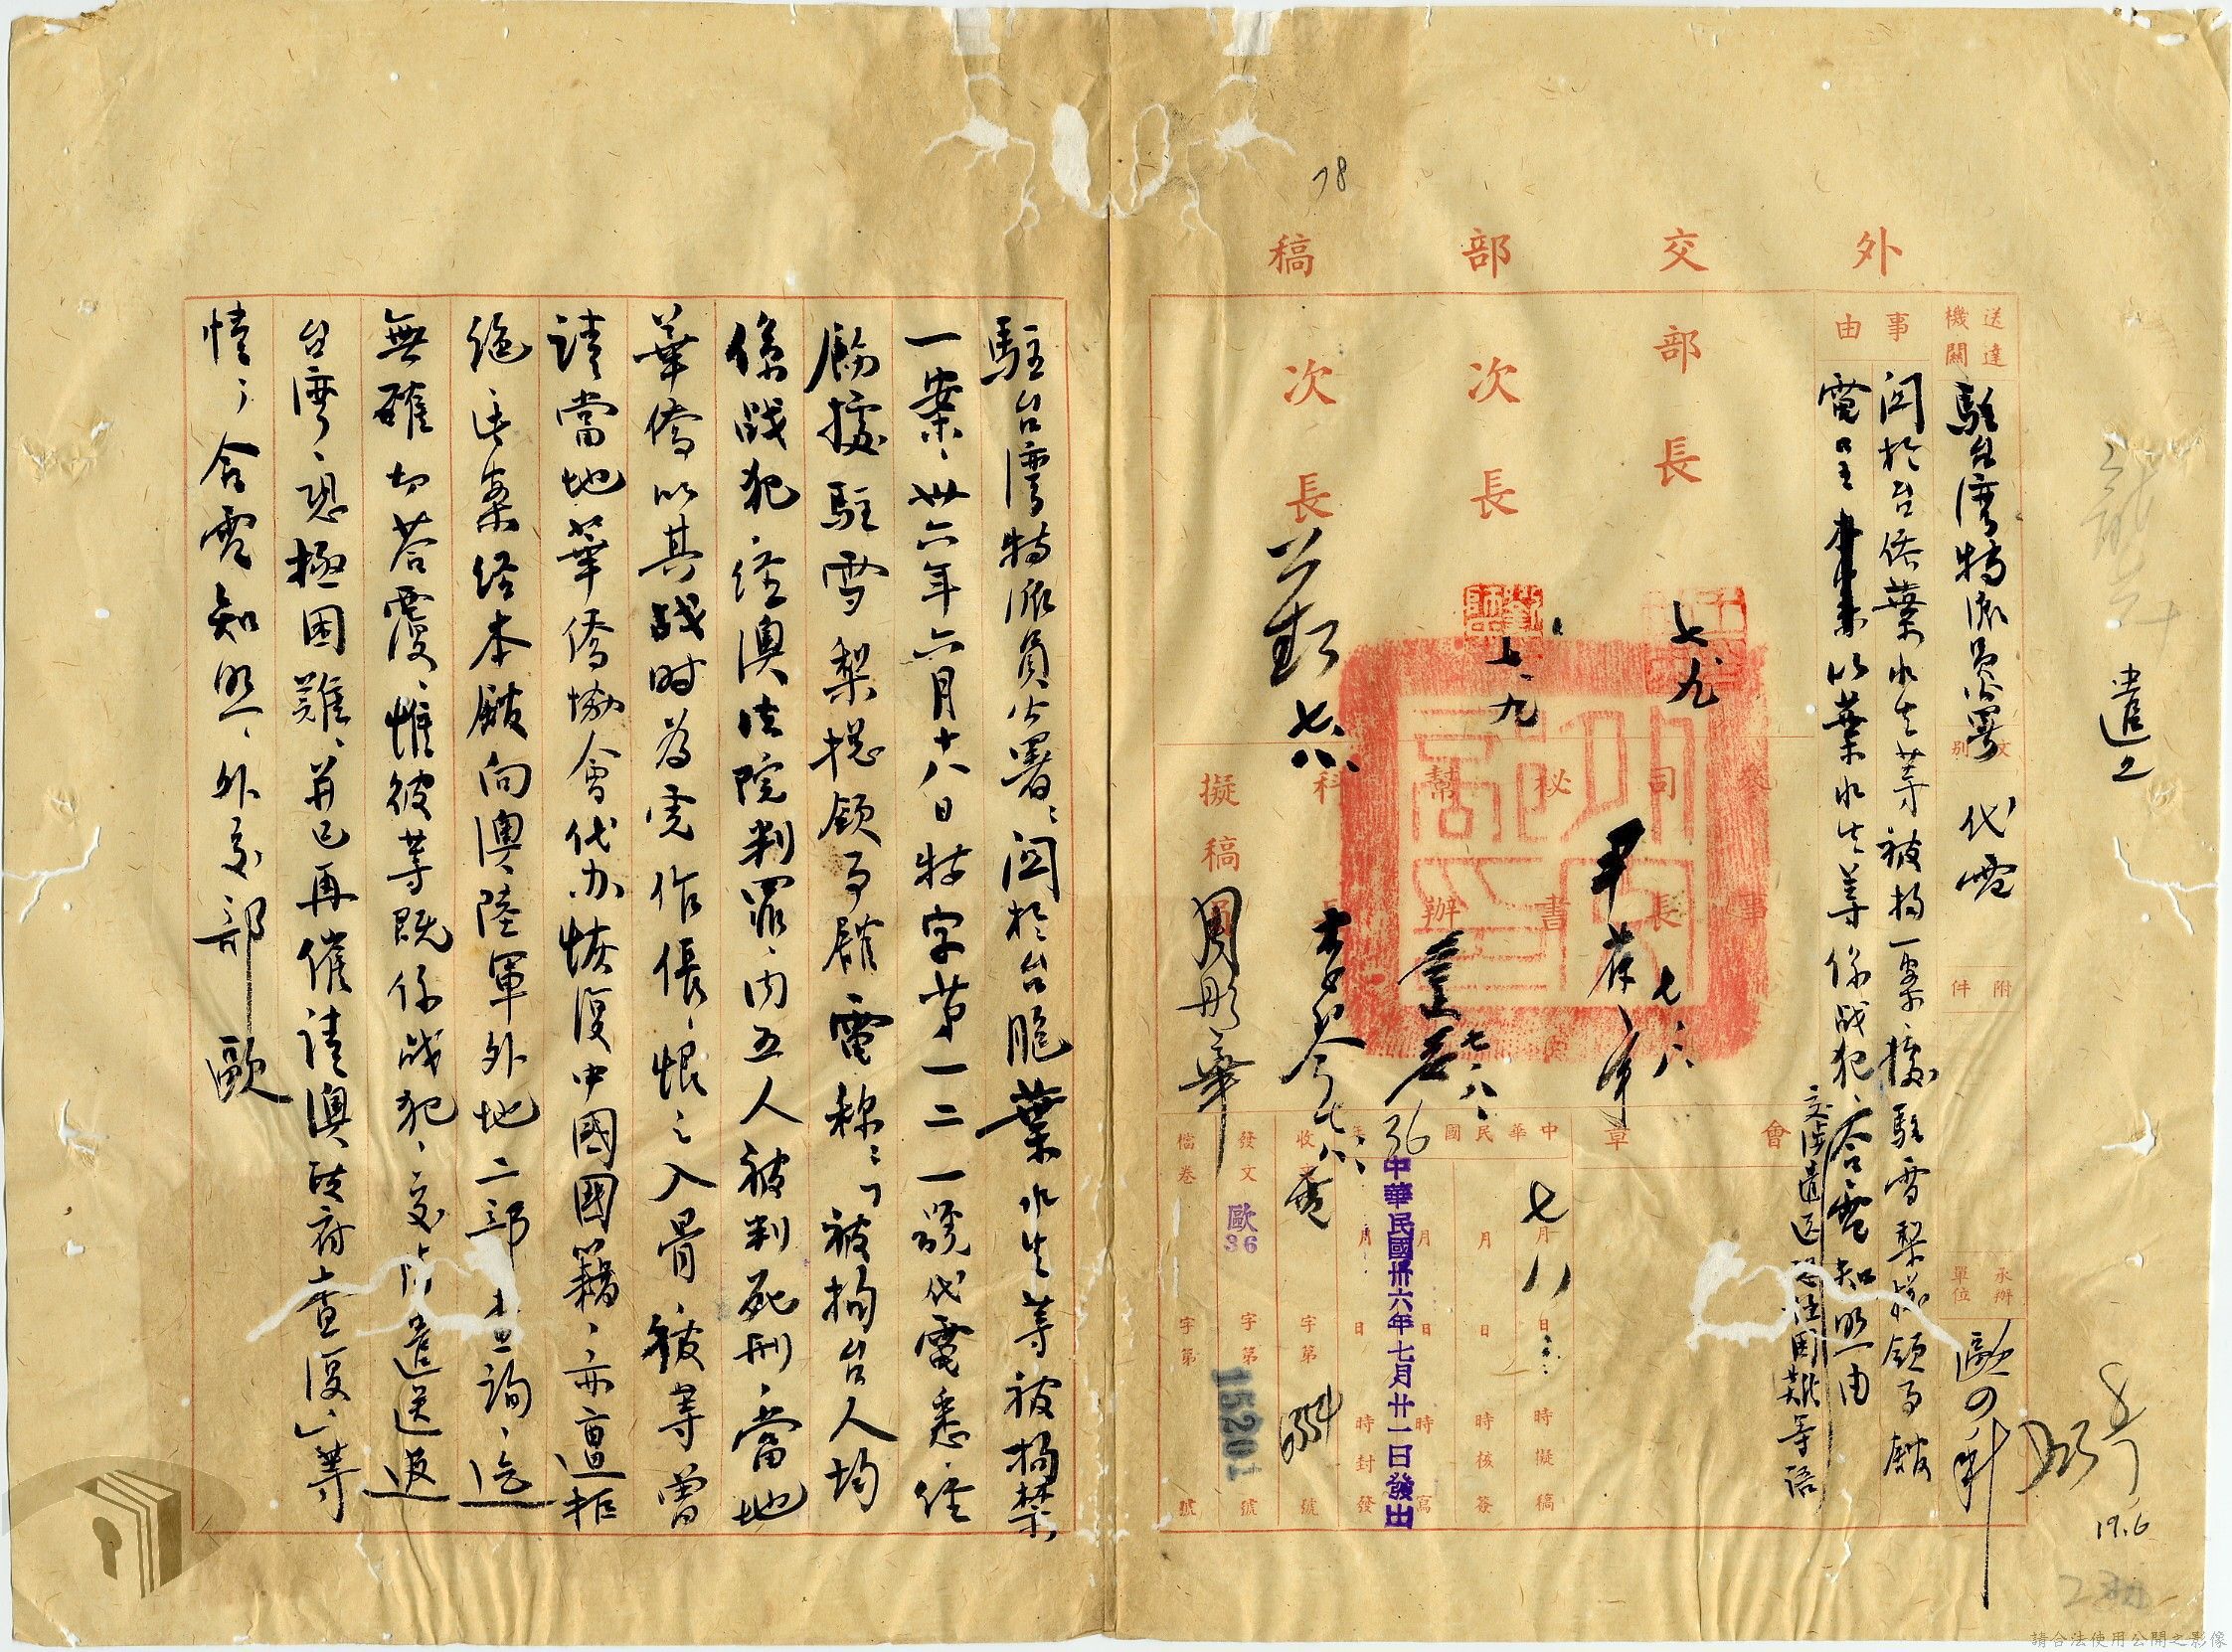 78
外交部稿
送達機關
駐台灣特派員公署
文別
代電
附件
承辦單位
歐四科
事由
関於台僑葉水生等被拘一案據駐雪梨總領事館
電呈以葉水生等係战犯、交涉遣返恐極困难等語
合電知照由
部長
七九
次長
七、九
次長
七八
參事
司長
七八
秘書
幫辦
七八
科長
七八
擬稿員
周彤華
會章
中華民國36年
七月八日 時擬稿
月 日 時核簽
月 日 時繕寫
月 日 時封發
中華民國卅六年七月廿一日發出
收文 字第 號
發文 歐36 字第 15201 號
檔卷 字第 號
遣2
19.6
駐台灣特派員公署：関於台胞葉水生等被拘禁
一案、卅六年六月十八日特字第一二一號代電悉、經
飭據駐雪梨總領事館電称：「被拘台人均
係战犯、經澳法院判罪、內五人被判死刑、當地
華僑以其战时為虎作倀、恨之入骨、彼等曾
請當地華僑協會代办恢復中國國籍、亦遭拒
絕、此案經本館向澳陸軍外地二部查詢、迄
無確切荅覆、惟彼等既係战犯、交涉遣送返
台灣、恐極困難、并已再催請澳政府查復」等
情、合電知照、外交部 歐
請合法使用公開之影像